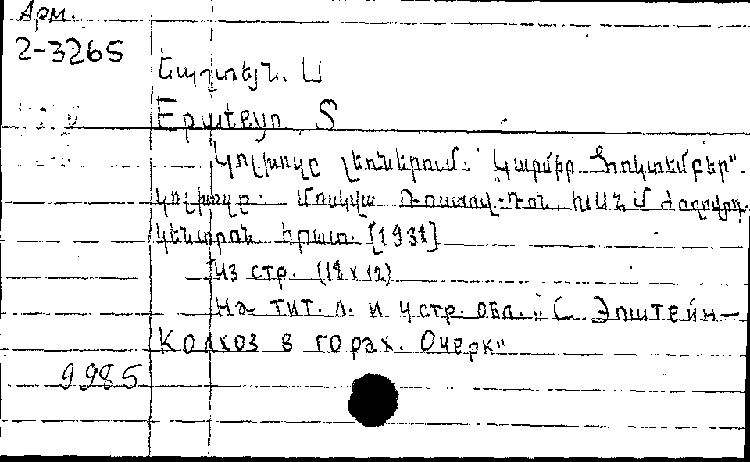 Арм.
2-3265
Եպշտեյն. Ս
Epшteyn S
Կոլխոզը լեռներում. Կարմիր Հոկտեմբեր".
կոլխոզը. Մոսկվա Ռոստով-Դոն, ԽՍՀՄ ժողովրդ.
կենտրոն. հրատ. [1931]
43 стр. (18 x 12)
На тит. л. и 4 стр. обл.: „С. Эпштейн —
Колхоз в горах. Очерк"
9985